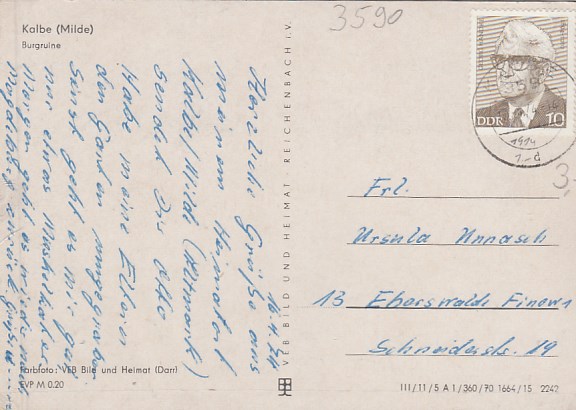 Kalbe (Milde)
Burgruine
3590
16.4.74
Herzliche Grüße aus
meinem Heimatort
Kalbe/Milde (Altmark)
sendet Ihr Udo
Habe meine Eltern
den Garten umgegraben
Sonst geht es mir gut
nur etwas Muskelkater
Morgen geht es wieder nach
Magdeburg zurück
Farbfoto: VEB Bild und Heimat (Darr)
EVP M 0.20
VEB BILD UND HEIMAT · REICHENBACH i. V.
DDR 10
Frl.
Ursula Unnasch
13 Eberswalde Finow 1
Schneiderstr. 19
III/11/5 A 1/360/70 1664/15 2242